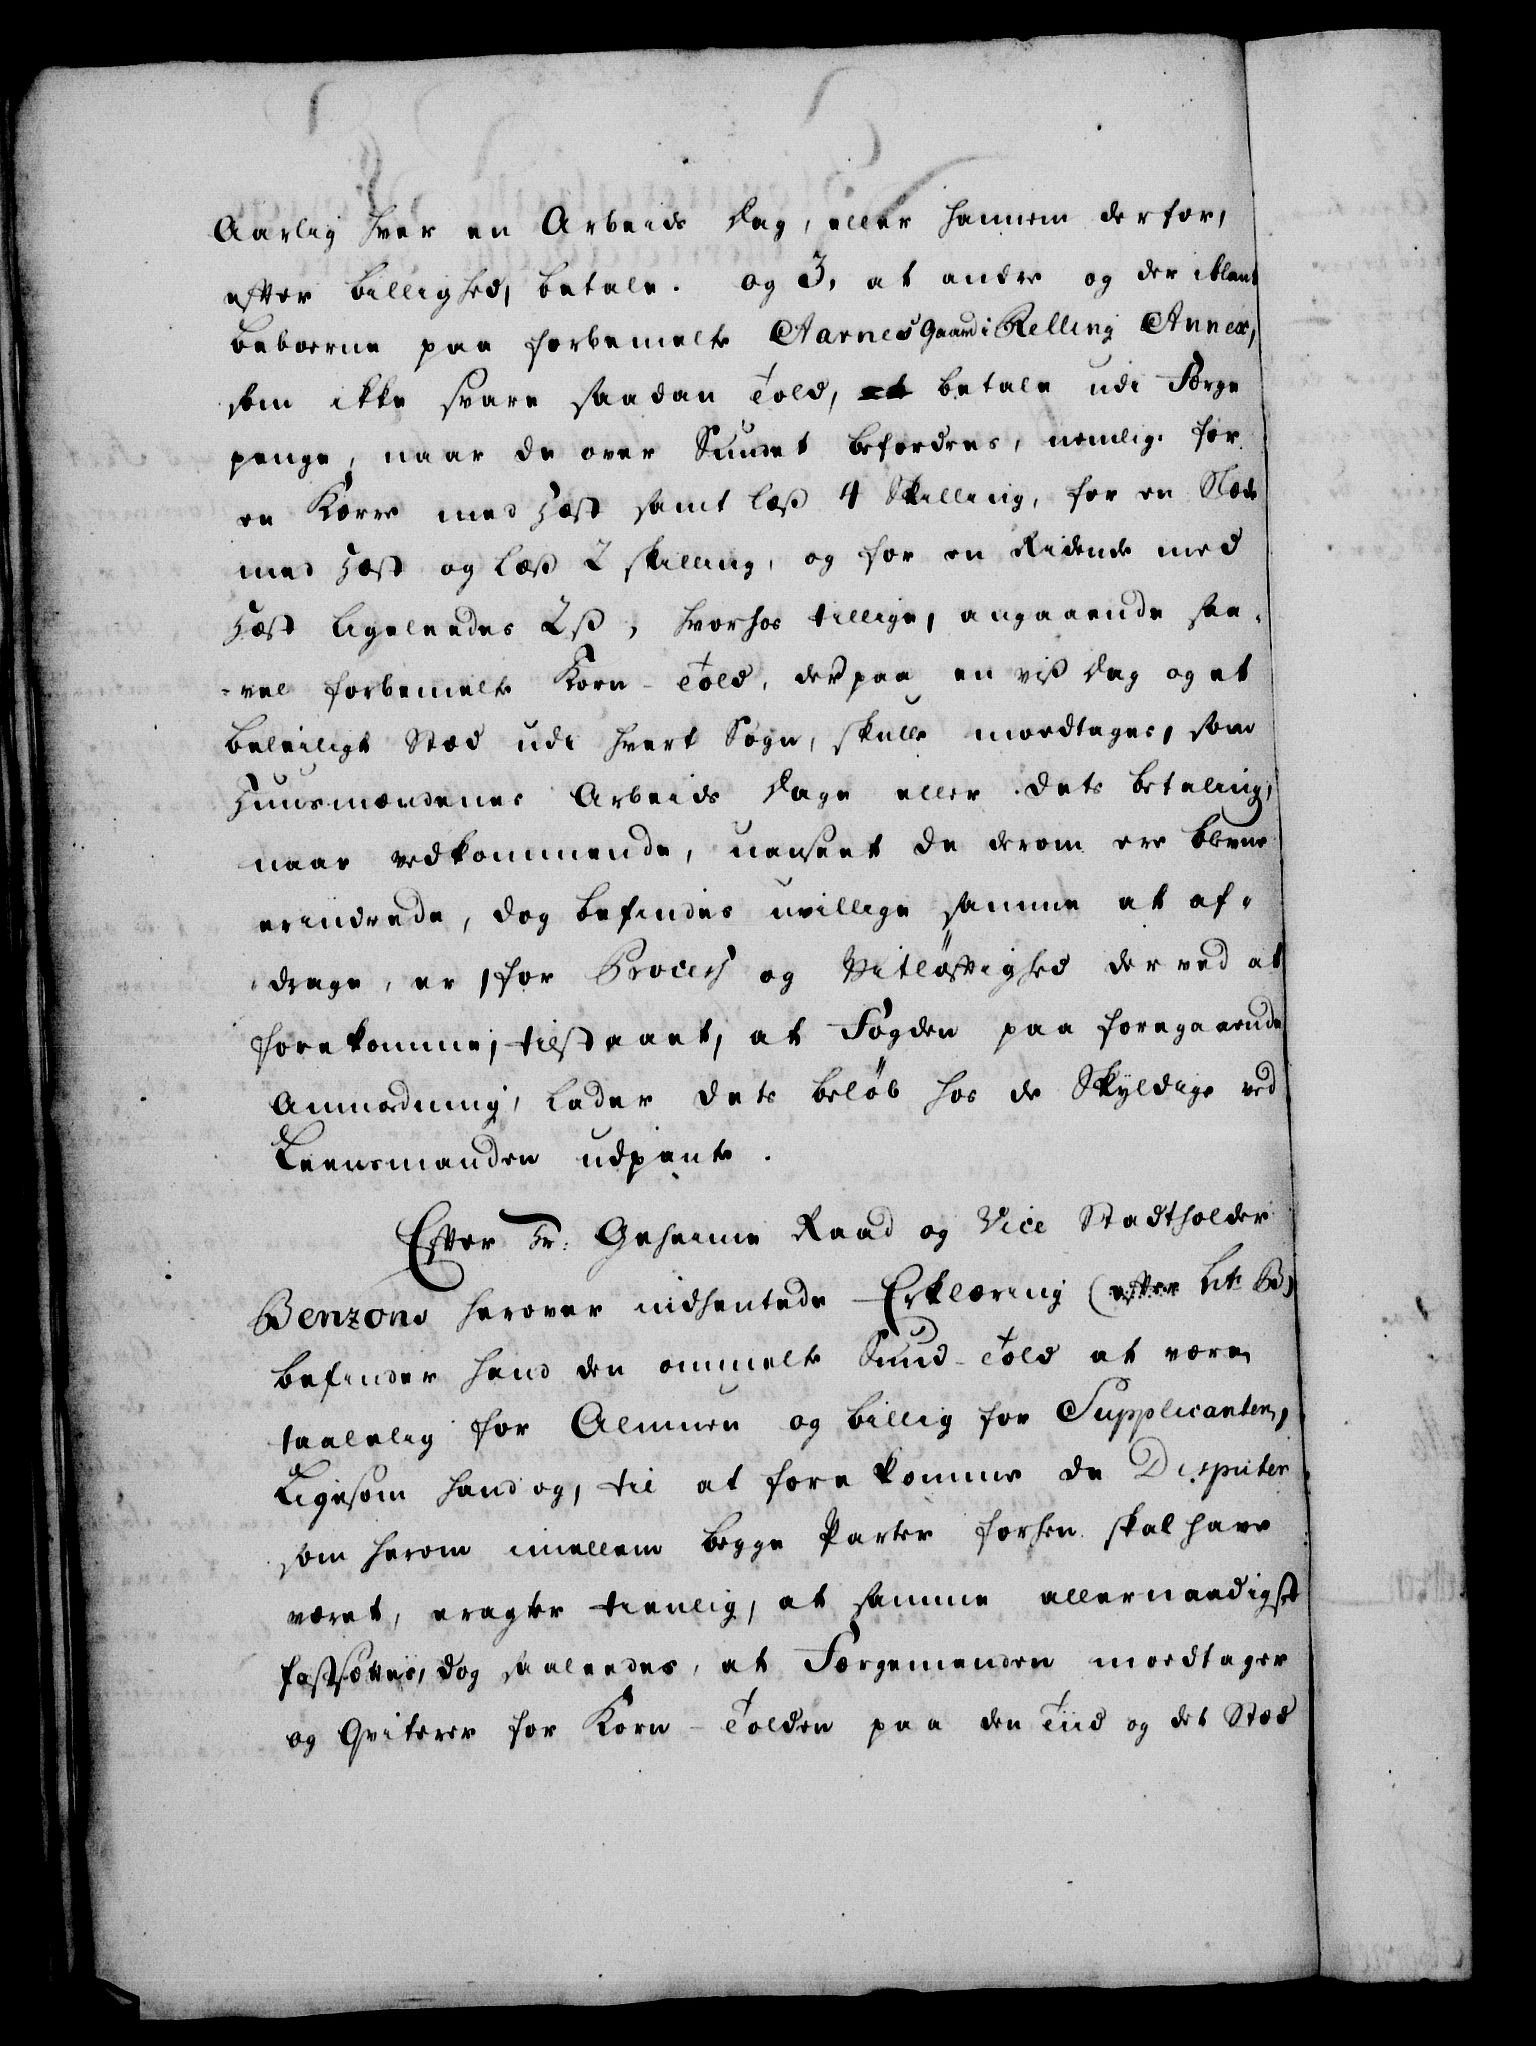 Aarlig hver en Arbeids Dag, eller hannem derfor,
efter billighed, betale. og 3, at andre og der iblant
beboerne paa forbemelte Aarnes Gaard i Relling Annex,
som ikke svare saadan Told, at betale udi Færge
penge, naar de over Sundet befordres, nemlig. for
en Kærre med Hæst samt læss 4 Skilling, for en Slæde
med Hæst og læss 2 skilling, og for en Ridende med
Hæst ligeleedes 2 ss, hvorhos tillige, angaaende saa-
-vel forbemelte Korn-Told, der paa en viss Dag og et
beleiligt Stæd udi hvert Sogn, skulle moedtages, som
Huusmændenes Arbeids Dage eller dets betaling,
naar vedkommende, uanseet de derom ere blevne
erindrede, dog befindes uvillige samme at af-
-drage, er, for Process og Vitløftighed derved at
forekomme, tilstaaet, at Fogden paa foregaaende
Anmodning, lader dets beløb hos de Skyldige ved
Leensmanden udpante.
Efter Hr: Geheime Raad og Vice Stadtholder
Benzons herover indhentede Erklæring (efter Lit B)
befinder hand den ommelte Sund-Told at være
taalelig for Almuen og billig for Supplicanten,
Ligesom hand og, til at forekomme de Disputer
som herom imellem begge Parter forhen skal have
været, eragter tienlig, at samme allernaadigst
fastsættes, dog saaleedes, at Færgemanden moedtager
og Qviterer for Korn-Tolden paa den Tiid og det Stæd